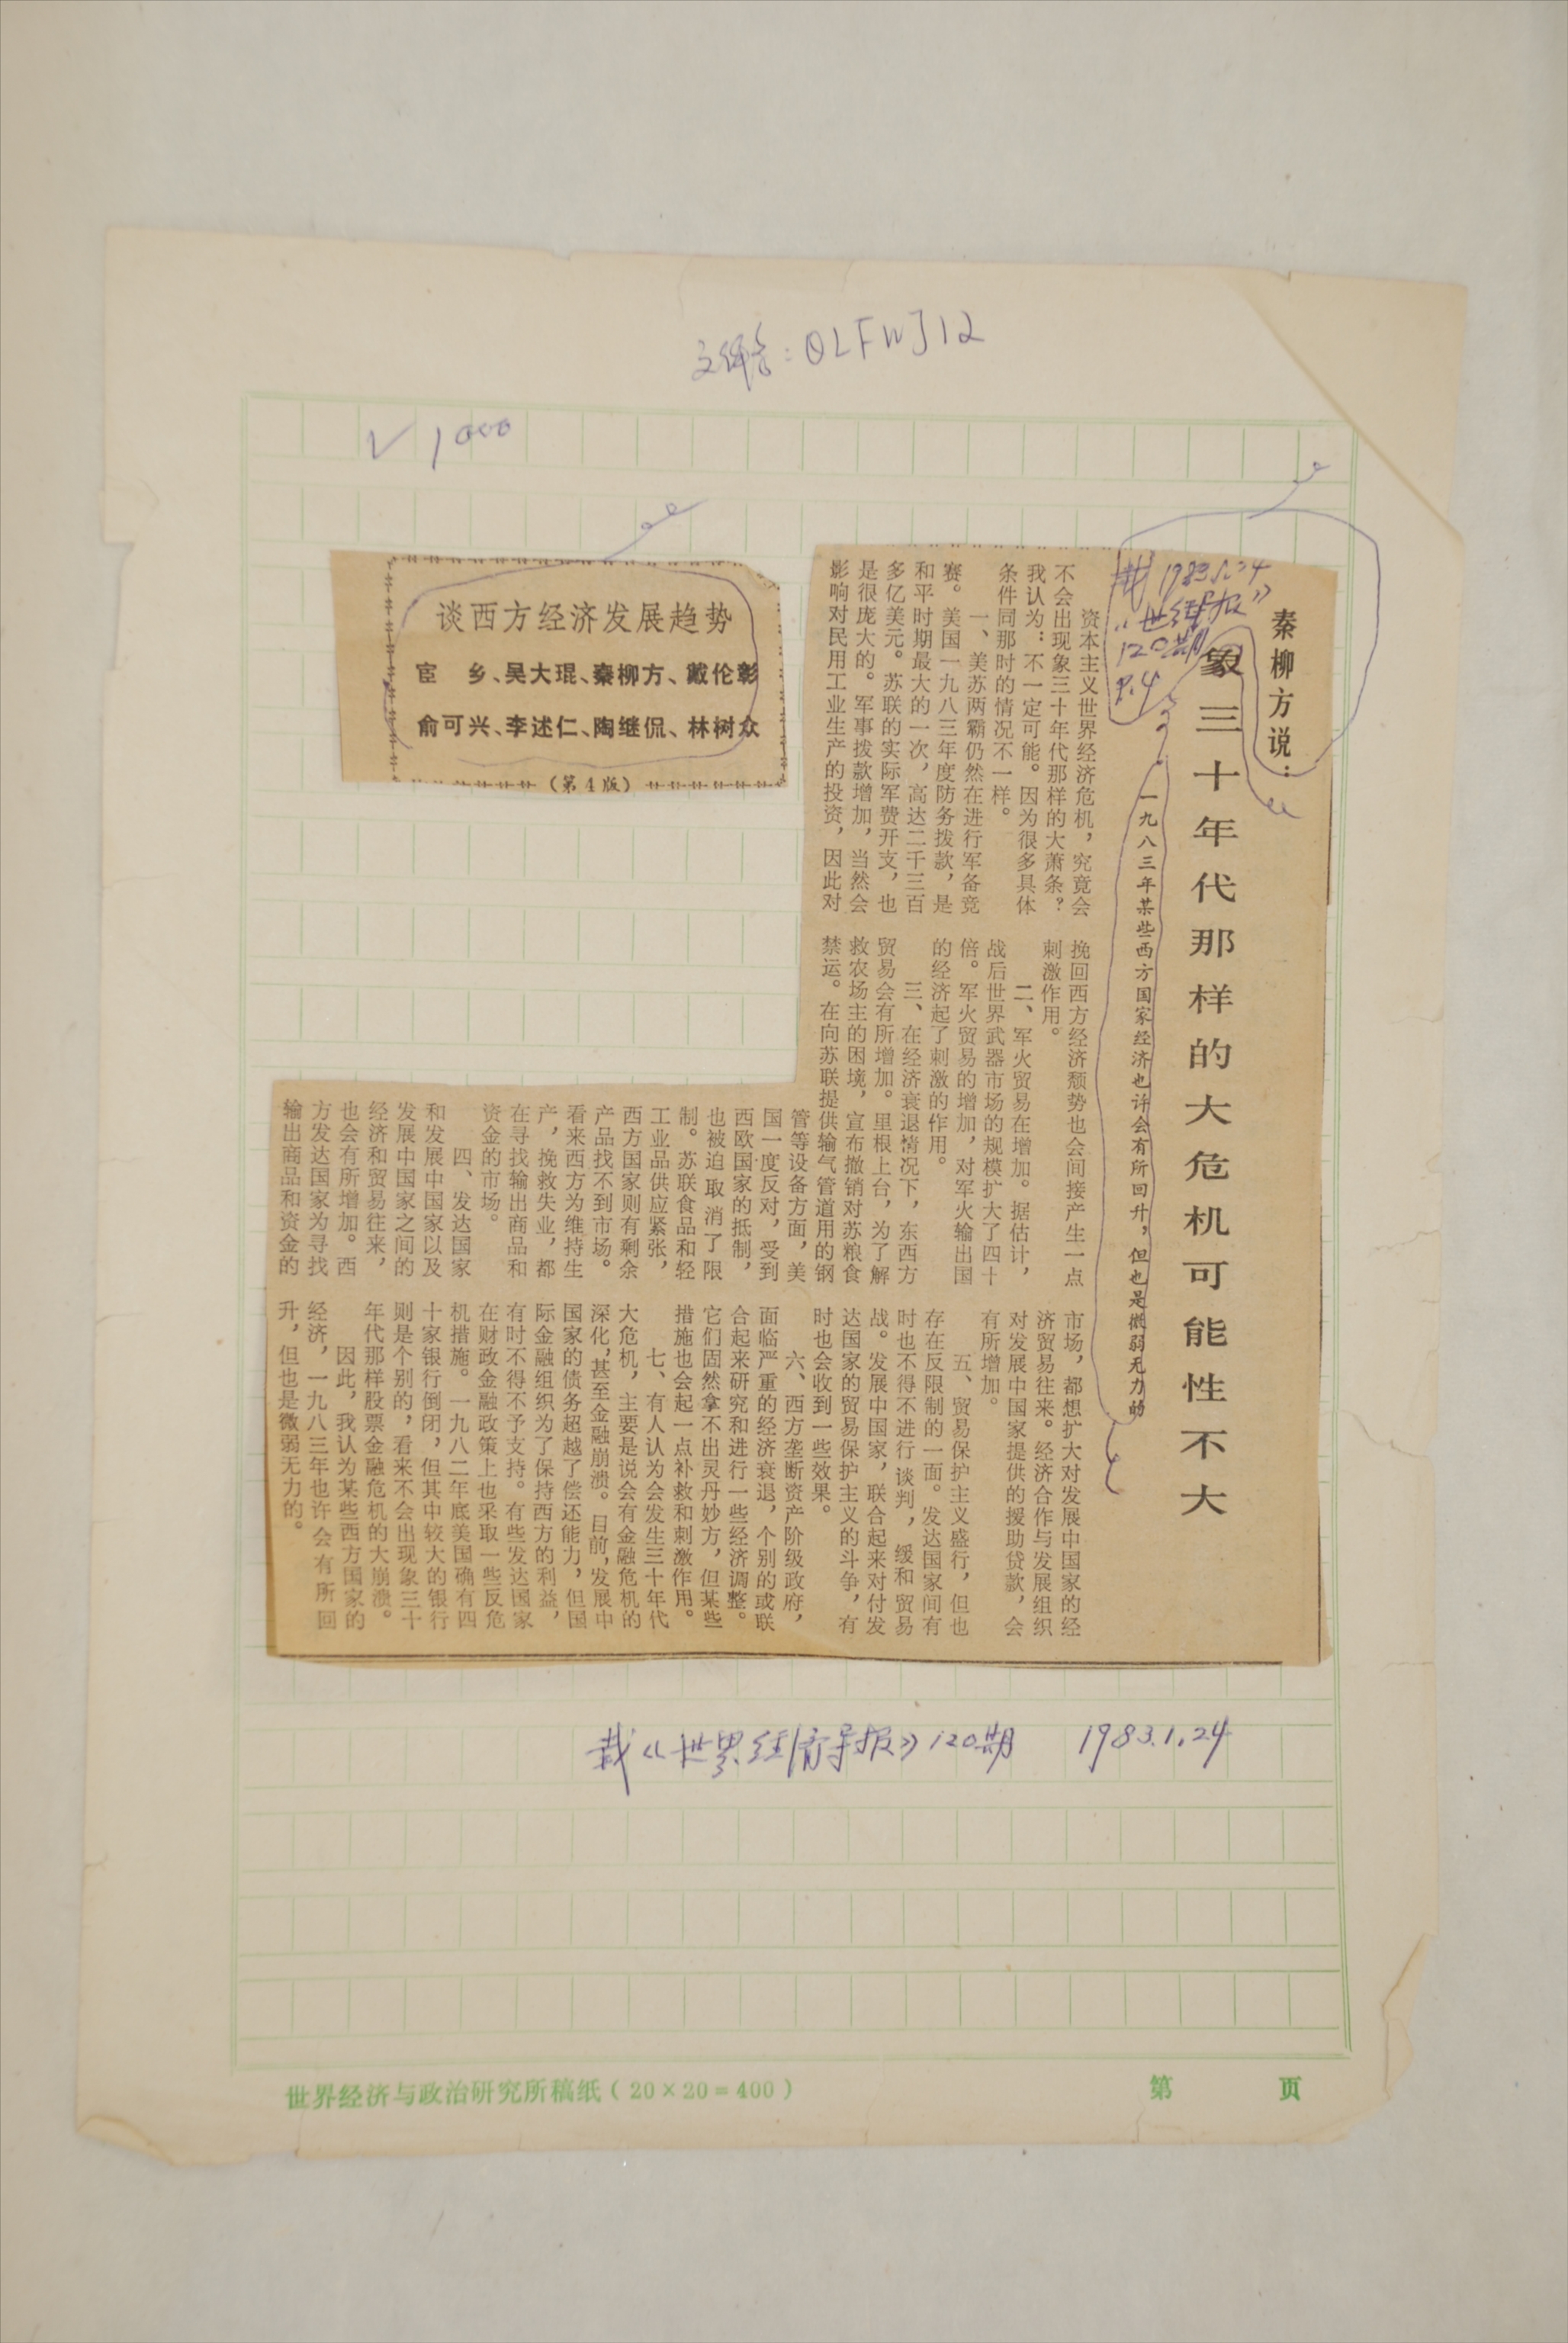 QLFWJ12
√ 1000
谈西方经济发展趋势
宦　乡、吴大琨、秦柳方、戴伦彰
俞可兴、李述仁、陶继侃、林树众
（第4版）
秦柳方说：
象三十年代那样的大危机可能性不大
一九八三年某些西方国家经济也许会有所回升，但也是微弱无力的
载 1983.1.24
120期
P.4
资本主义世界经济危机，究竟会
不会出现象三十年代那样的大萧条？
我认为：不一定可能。因为很多具体
条件同那时的情况不一样。
一、美苏两霸仍然在进行军备竞
赛。美国一九八三年度防务拨款，是
和平时期最大的一次，高达二千三百
多亿美元。苏联的实际军费开支，也
是很庞大的。军事拨款增加，当然会
影响对民用工业生产的投资，因此对
挽回西方经济颓势也会间接产生一点
刺激作用。
二、军火贸易在增加。据估计，
战后世界武器市场的规模扩大了四十
倍。军火贸易的增加，对军火输出国
的经济起了刺激的作用。
三、在经济衰退情况下，东西方
贸易会有所增加。里根上台，为了解
救农场主的困境，宣布撤销对苏粮食
禁运。在向苏联提供输气管道用的钢
管等设备方面，美
国一度反对，受到
西欧国家的抵制，
也被迫取消了限
制。苏联食品和轻
工业品供应紧张，
西方国家则有剩余
产品找不到市场。
看来西方为维持生
产，挽救失业，都
在寻找输出商品和
资金的市场。
四、发达国家
和发展中国家以及
发展中国家之间的
经济和贸易往来，
也会有所增加。西
方发达国家为寻找
输出商品和资金的
市场，都想扩大对发展中国家的经
济贸易往来。经济合作与发展组织
对发展中国家提供的援助贷款，会
有所增加。
五、贸易保护主义盛行，但也
存在反限制的一面。发达国家间有
时也不得不进行谈判，缓和贸易
战。发展中国家，联合起来对付发
达国家的贸易保护主义的斗争，有
时也会收到一些效果。
六、西方垄断资产阶级政府，
面临严重的经济衰退，个别的或联
合起来研究和进行一些经济调整。
它们固然拿不出灵丹妙方，但某些
措施也会起一点补救和刺激作用。
七、有人认为会发生三十年代
大危机，主要是说会有金融危机的
深化，甚至金融崩溃。目前，发展中
国家的债务超越了偿还能力，但国
际金融组织为了保持西方的利益，
有时不得不予支持。有些发达国家
在财政金融政策上也采取一些反危
机措施。一九八二年底美国确有四
十家银行倒闭，但其中较大的银行
则是个别的，看来不会出现象三十
年代那样股票金融危机的大崩溃。
因此，我认为某些西方国家的
经济，一九八三年也许会有所回
升，但也是微弱无力的。
载《世界经济导报》120期 1983.1.24
世界经济与政治研究所稿纸（20×20=400）
第　页